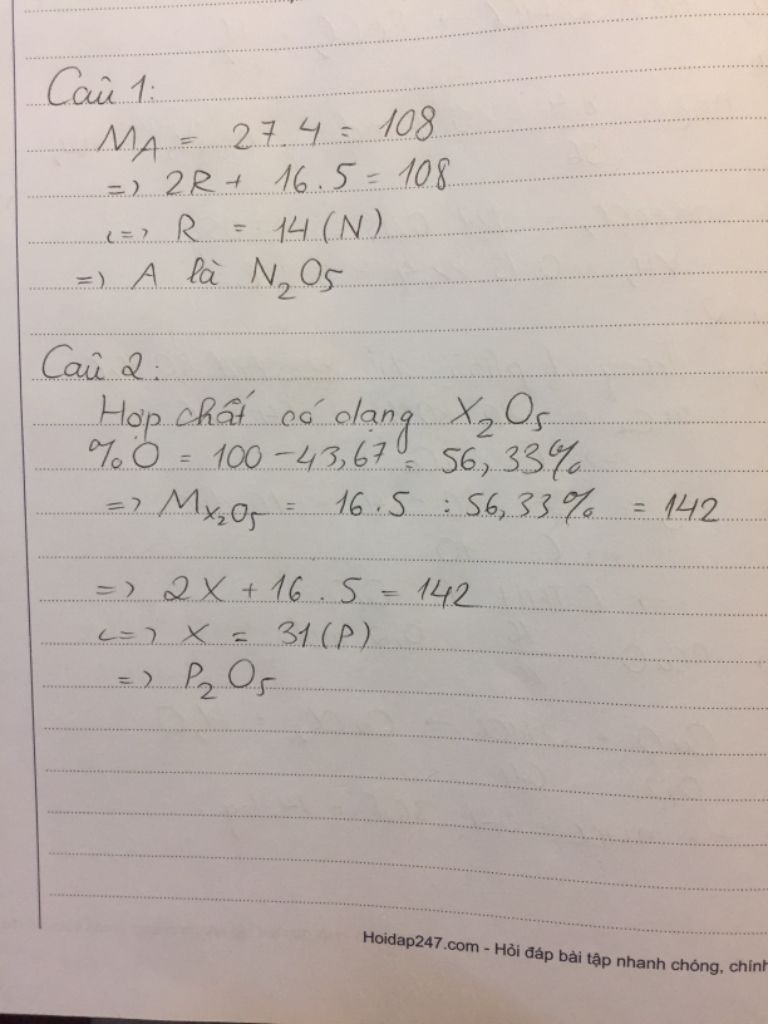 Câu 1:
MA = 27.4 = 108
=> 2R + 16.5 = 108
<=> R = 14 (N)
=> A là N2O5
Câu 2:
Hợp chất có dạng X2O5
%O = 100 - 43,67 = 56,33%
=> MX2O5 = 16.5 : 56,33% = 142
=> 2X + 16.5 = 142
<=> X = 31 (P)
=> P2O5
Hoidap247.com - Hỏi đáp bài tập nhanh chóng, chính